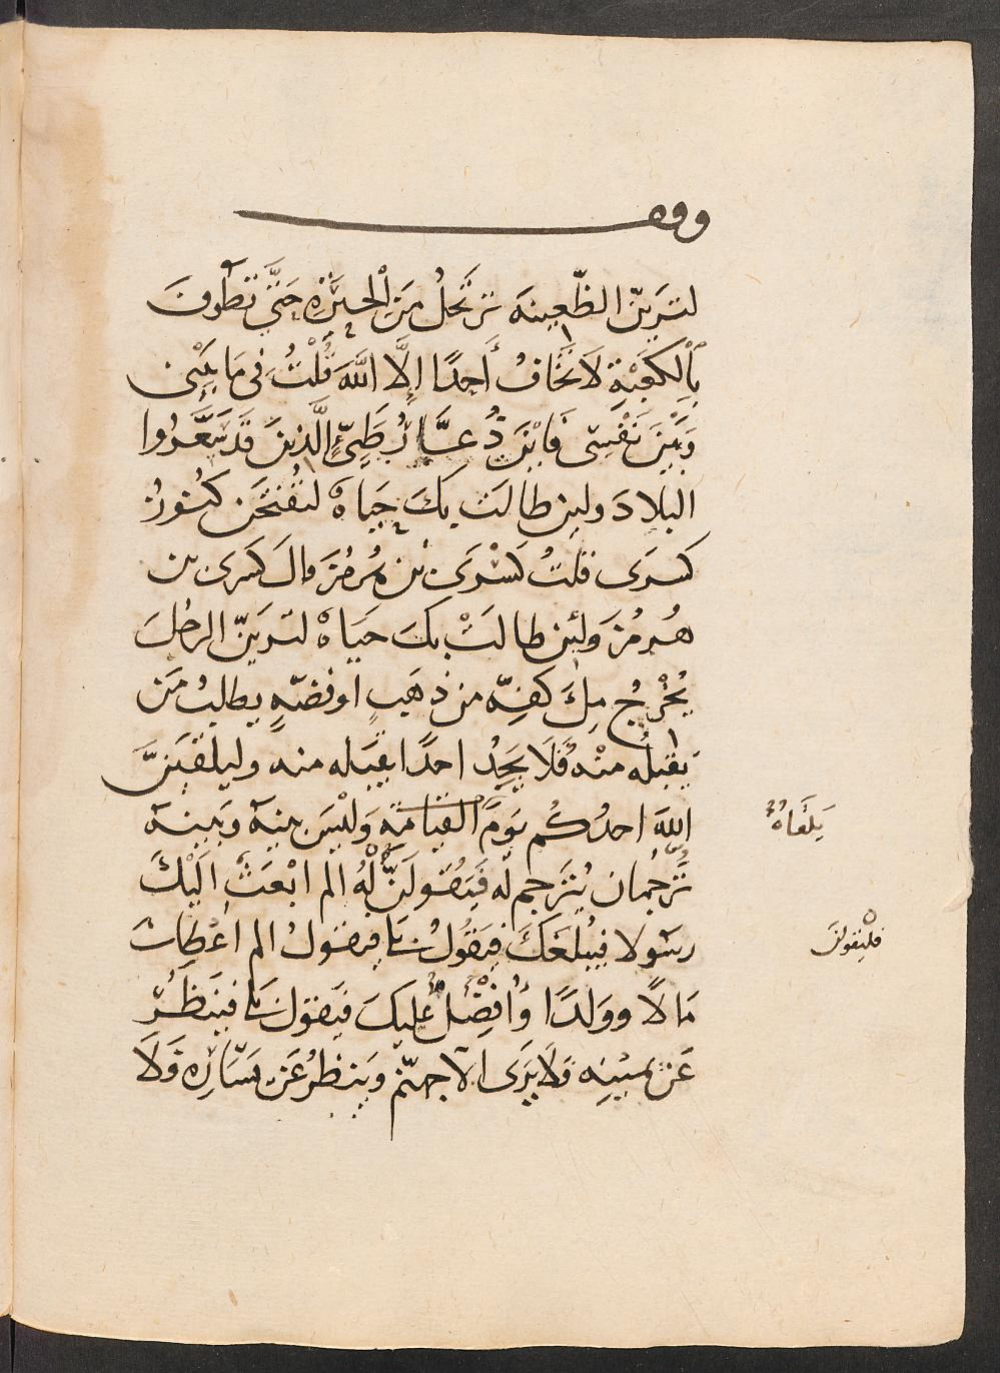 وقف
لترينّ الظّعِينَة تَرتَحلُ مِنَ الْحِيرَةِ حَتَّى تَطوفَ
بِالْكَعْبَةِ لَا تَخَافُ أَحَدًا إِلَّا اللَّهَ قُلْتُ فِى مَا بَيْنى
وَبَيْنَ نَفْسِى فَايْنَ دُعَّارُ طَيِّءٍ الَّذينَ قَد سَعَّرُوا
البلادَ ولين طالت بكَ حَياةٌ لتُفْتَحَن كُنُوزُ
كسرَى قلتُ كسْرَى بْن هُرمُزَ قال كَسرى بن
هُرمُزَ ولئِن طالَتْ بكَ حيَاةٌ لتَرَيَنّ الرجُلَ
يُخْرِجُ مِلَْ كفِّهِ من ذهَبٍ او فضّةٍ يطلبُ مَن
يَقبَلُه مِنْهُ فَلَا يَجِدُ احدًا يقبَله منه وليلقَيَنَّ
اللهَ احدُكُم يَوْمَ القيامة وَلَيْسَ بينهَ وَبينهَ
تُرجُمان يُترجم لَه فَيَقُولَنَّ لَهُ الم ابْعَثْ الَيْكَ
رسولا فيبُلغَكَ فيَقُولُ بَلَى فيقولُ الم اعْطِكَ
مَالًا وولدًا وَأفْضِلْ عليكَ فيَقول بَلَى فينظُرُ
عَن يمينِه فَلَا يَرَى الا جهنّم وَينظرُ عَن يسَارِه فَلَا
يَلقَاهُ
فليقولن